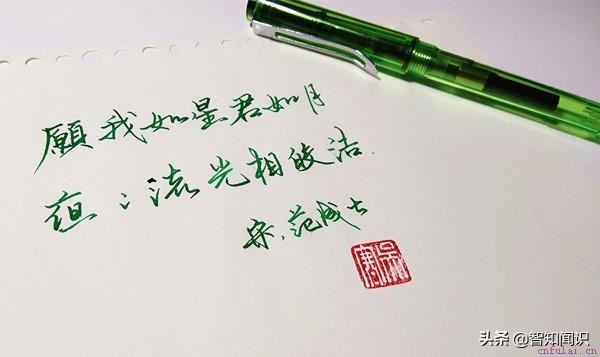 願我如星君如月
夜〻流光相皎洁.
宋.范成大
头条@智知闻识
cnfulai.cn